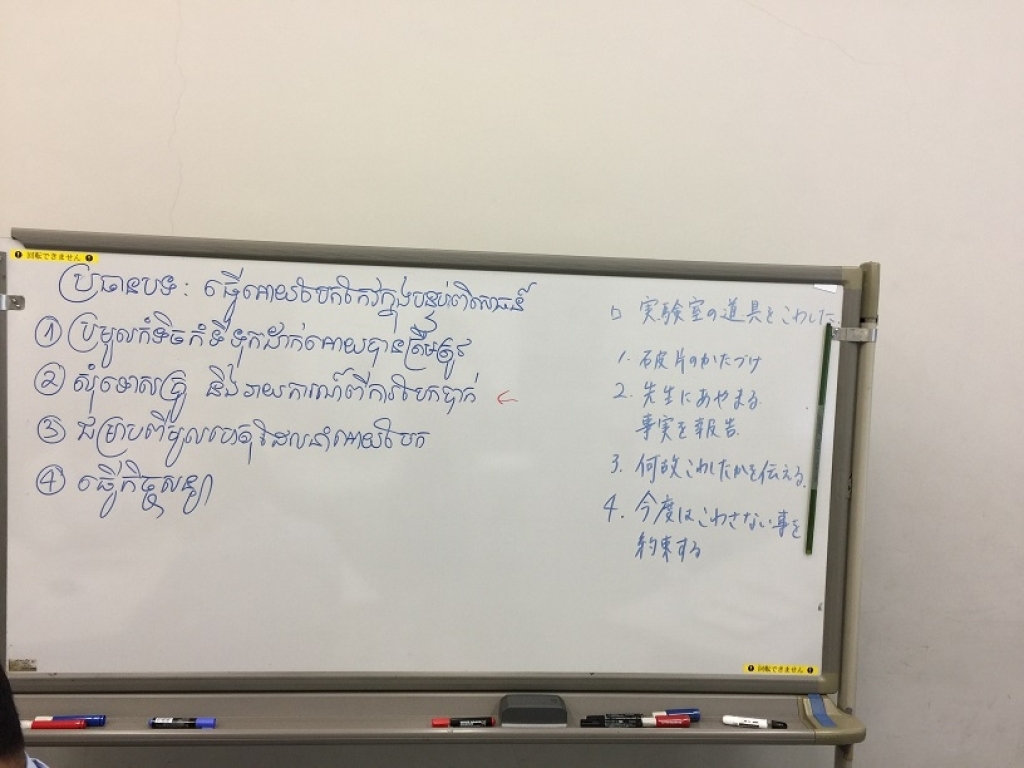 回転できません
ប្រធានបទ : ធ្វើអោយបែកកែវក្នុងបន្ទប់ពិសោធន៍
① ប្រមូលកំទិចកំទីទុកដាក់អោយបានត្រឹមត្រូវ
② សុំទោសគ្រូ និងរាយការណ៍ពីការបែកបាក់
③ ជម្រាបពីមូលហេតុដែលនាំអោយបែក
④ ធ្វើកិច្ចសន្យា
□ 実験室の道具をこわした
1. 破片のかたづけ
2. 先生にあやまる
事実を報告
3. 何故こわしたかを伝える.
4. 今度はこわさない事を
約束する
回転できません